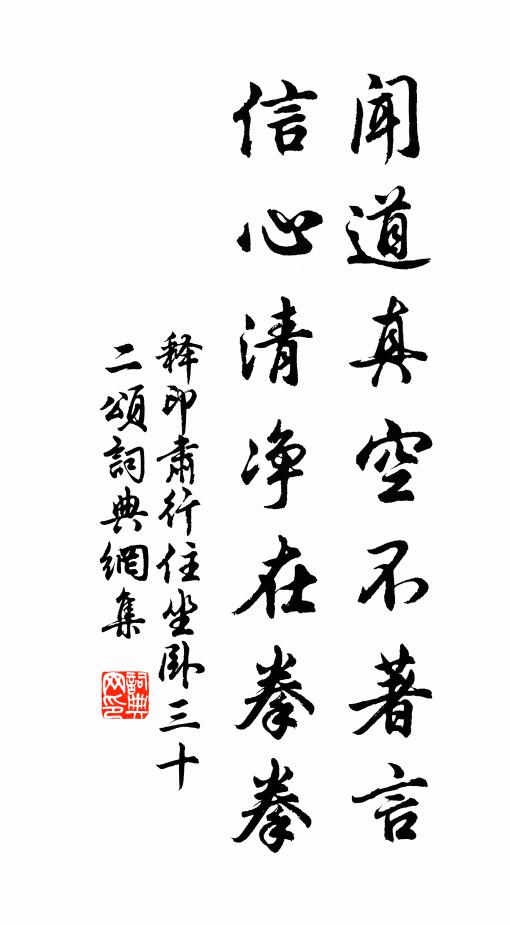 闻道真空不著言
信心清净在拳拳
释印肃行住坐卧三十
二颂词典網集
詞典
网印